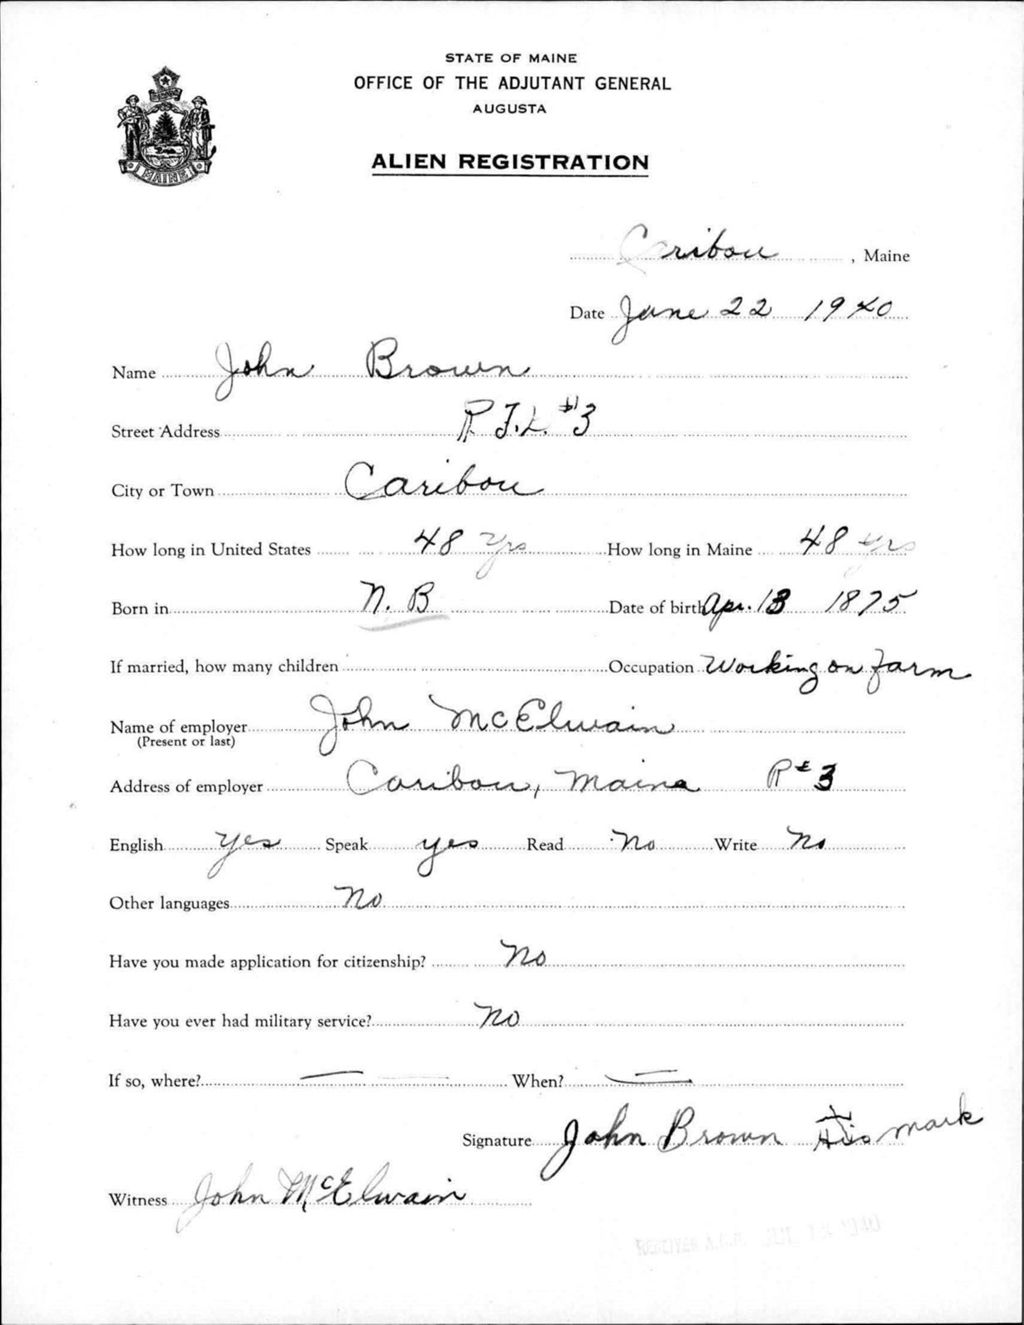 STATE OF MAINE
OFFICE OF THE ADJUTANT GENERAL
AUGUSTA
ALIEN REGISTRATION
MAINE
Caribou, Maine
Date June 22 1940
Name John Brown
Street Address R.F.D. #3
City or Town Caribou
How long in United States 48 yrs How long in Maine 48 yrs
Born in N.B Date of birth Apr. 13 1875
If married, how many children Occupation Working on farm
Name of employer John McElwain
(Present or last)
Address of employer Caribou, Maine R#3
English yes Speak yes Read No Write No
Other languages No
Have you made application for citizenship? No
Have you ever had military service? No
If so, where? — When? —
Signature John Brown His X mark
Witness John McElwain
RECEIVED A.G.O. 1940